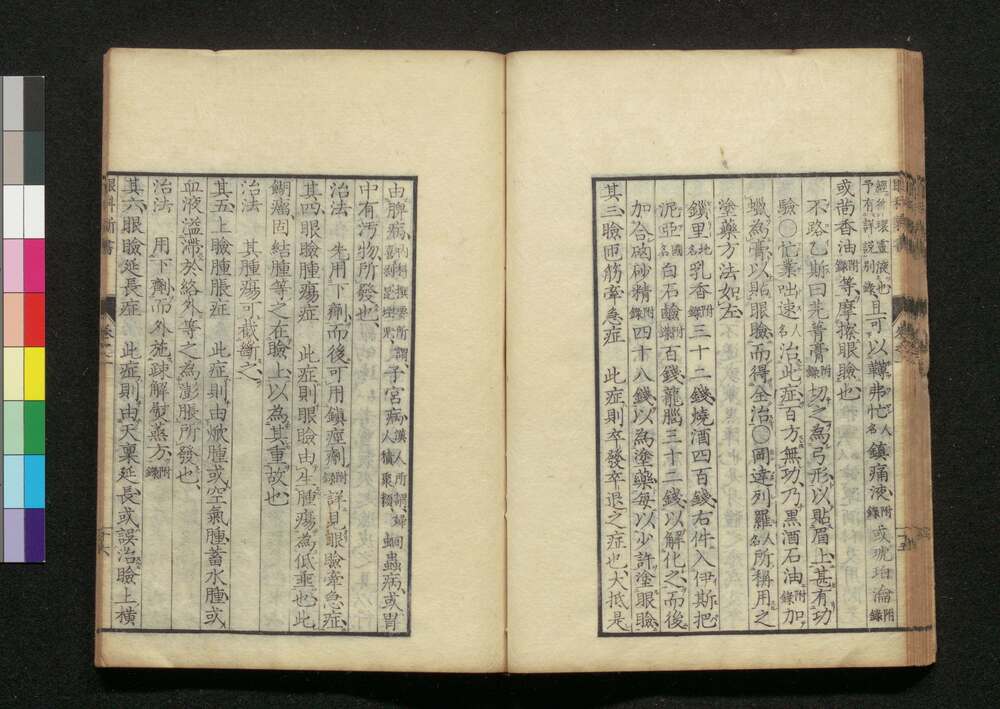 予有詳説別錄且可以鞾弗忙人名鎭痛液附錄或琥珀淪附錄
或茴香油附錄等摩擦眼瞼也
不路乙斯曰芫菁膏附錄切之為弓形以貼眉上甚有功
驗○忙業咄速人名治此症百方無功乃黒酒石油附錄加
蠟為膏以貼眼瞼而得全治○岡達列羅人名所稱用之
塗藥方法如左
鐵里地名乳香附錄三十二錢燒酒四百錢右件入伊斯把
泥亞國名白石鹼附錄百錢龍腦三十二錢以解化之而後
加合硇砂精附錄四十八錢以為塗藥毎以少許塗眼瞼
其三瞼匝筋牽急症 此症則卒發卒退之症也大抵是
由脾病子宮病蚘蟲病或胃
中有汚物所發也
治法 先用下劑而後可用鎭痙劑附錄詳見眼瞼牽急症
其四眼瞼腫瘍症 此症則眼瞼由生腫瘍為低垂也此
餬瘤固結腫等之在瞼上以為其重故也
治法 其腫瘍可截斷之
其五上瞼腫脹症 此症則由焮腫或空氣腫蓄水腫或
血液溢滯於絡外等之為膨脹所發也
治法 用下劑而外施疎解熨蒸方附錄
其六眼瞼延長症 此症則由天稟延長或誤治瞼上橫
眼科新書